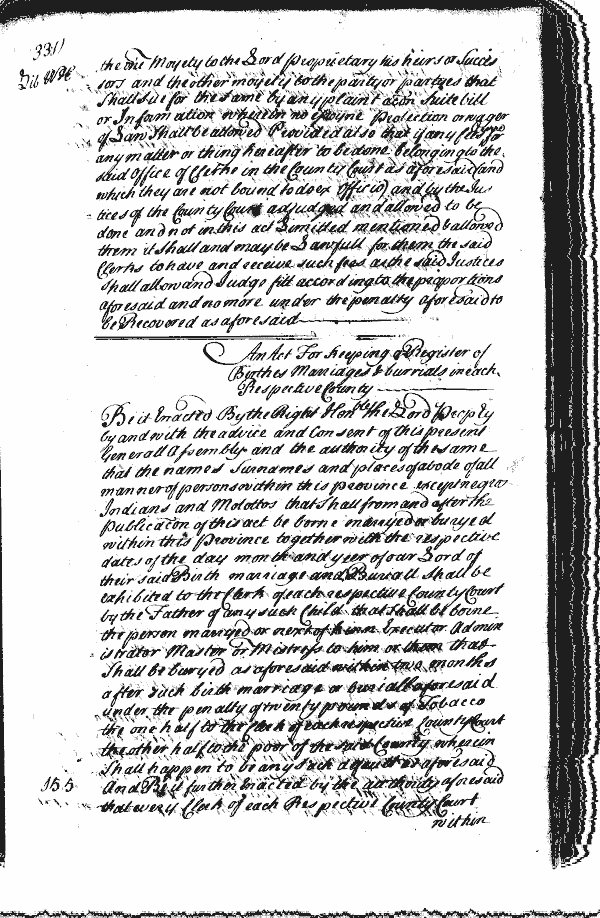 331
Lib WH
the one Moyety to the Lord Proprietary his heirs or Succes
sors and the other moyety to the party or partyes that
Shall sue for the same by any plaint accon Suite bill
or Information wherein no Essoyne Protection or wager
of Law Shall be allowed Provided also that if any
any matter or thing hereafter to be done belonging to the
said office of Clerke in the County Court as aforesaid and
which they are not bound to doe ex Officio and by the Jus
tices of the County Court adjudged and allowed to be
done and not in this act Limitted mentioned & allowed
them it Shall and may be Lawfull for them the said
Clerks to have and receive such fees as the said Justices
Shall allow and Judge fitt according to the proportions
aforesaid and no more under the penalty aforesaid to
be Recovered as aforesaid
An Act For Keeping a Register of
Birthes Marriages & burrials in each
Respective County
Be it Enacted By the Right Honble the Lord Propry
by and with the advice and Consent of this present
Generall Assembly and the authority of the same
that the names Surnames and places of abode of all
manner of persons within this province except negros
Indians and Molottos that Shall from and after the
Publication of this act be borne marryed or buryed
within this Province together with the respective
dates of the day month and year of our Lord of
their said Birth marriage and Buriall Shall be
exhibited to the Clerk of each respective County Court
by the Father of any such Child that shall be borne
the person marryed or next of kinn Executor Admin
istrator Master or Mistress to him or them that
Shall be buryed as aforesaid within two months
after such birth marriage or buriall aforesaid
under the penalty of twenty pounds of Tobacco
the one half to the Clerk of each respective County Court
the other half to the poor of the said County wherein
Shall happen to be any such aforesaid
155
And Be it further Enacted by the authority aforesaid
that every Clerk of each Respective County Court
within